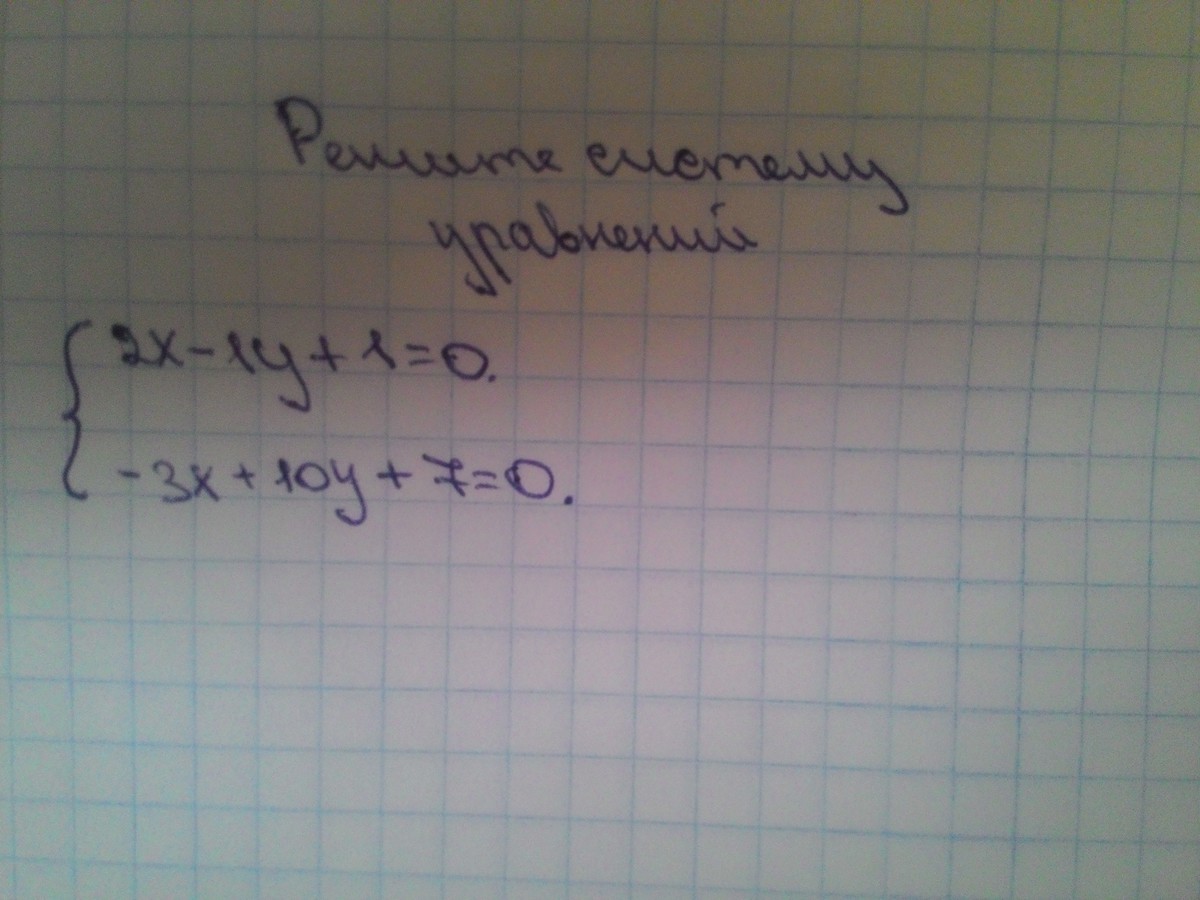 Решите систему
уравнений
2x-1y+1=0.
-3x+10y+7=0.